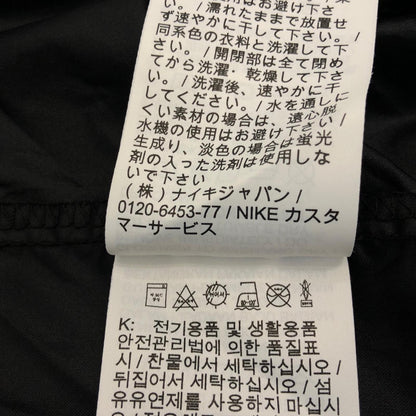 用はお避け下さい
/ 濡れたままで放置せ
ず速やかに干して下さい。/
同系色の衣料と洗濯して下
さい。/ 開閉部は全て閉め
てから洗濯・乾燥して下さ
い。/ 洗濯後、速やかに干
してください。/ 水を通しに
くい素材の場合は、遠心脱
水機の使用はお避け下さい
生成り、淡色の場合は蛍光
剤の入った洗剤は使用しな
いで下さい
(株) ナイキジャパン /
0120-6453-77 / NIKE カスタ
マーサービス
K: 전기용품 및 생활용품
안전관리법에 의한 품질표
시 / 찬물에서 세탁하십시오 /
뒤집어서 세탁하십시오 / 섬
유유연제를 사용하지 마십시